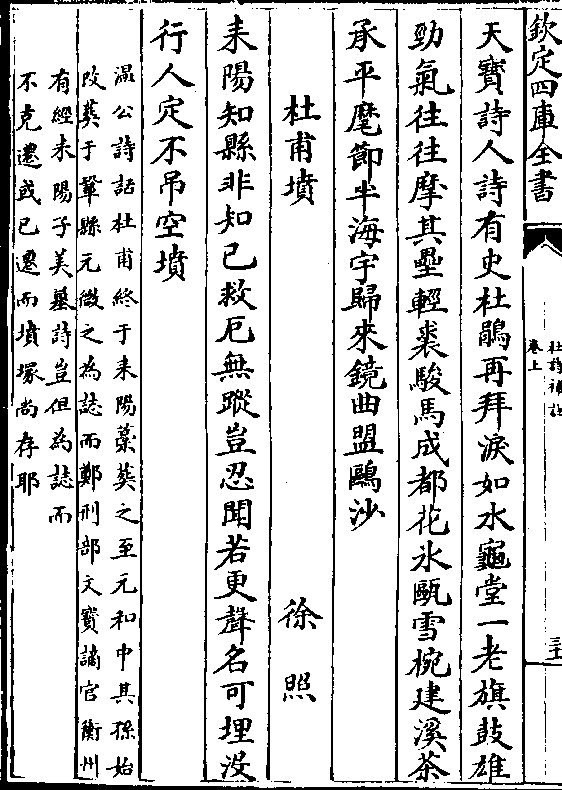 欽定四庫全書
卷上
天寶詩人詩有史杜鵑再拜淚如水龜堂一老旗鼓雄
勁氣往往摩其壘輕裘駿馬成都花氷甌雪椀建溪茶
承平麾節半海宇歸來鏡曲盟鷗沙
杜甫墳 徐照
耒陽知縣非知己救厄無蹤豈忍聞若更聲名可埋没
行人定不吊空墳
温公詩話杜甫終于耒陽藁葬之至元和中其孫始
改葬于鞏縣元微之為誌而鄭刑部文寶謫官衡州
有經耒陽子美墓詩豈但為誌而
不克遷或已遷而墳塚尚存耶